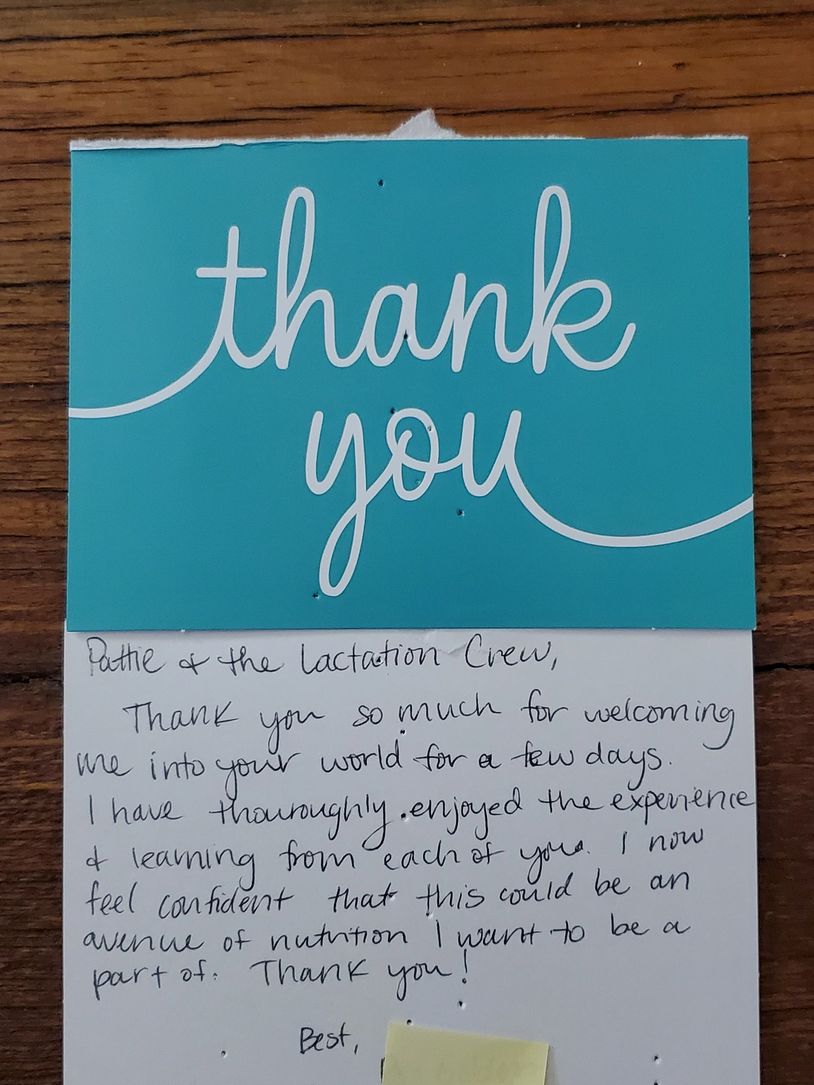 thank
you
Pattie & the Lactation Crew,
Thank you so much for welcoming
me into your world for a few days.
I have thouroughly enjoyed the experience
& learning from each of you. I now
feel confident that this could be an
avenue of nutrition I want to be a
part of. Thank you!
Best,